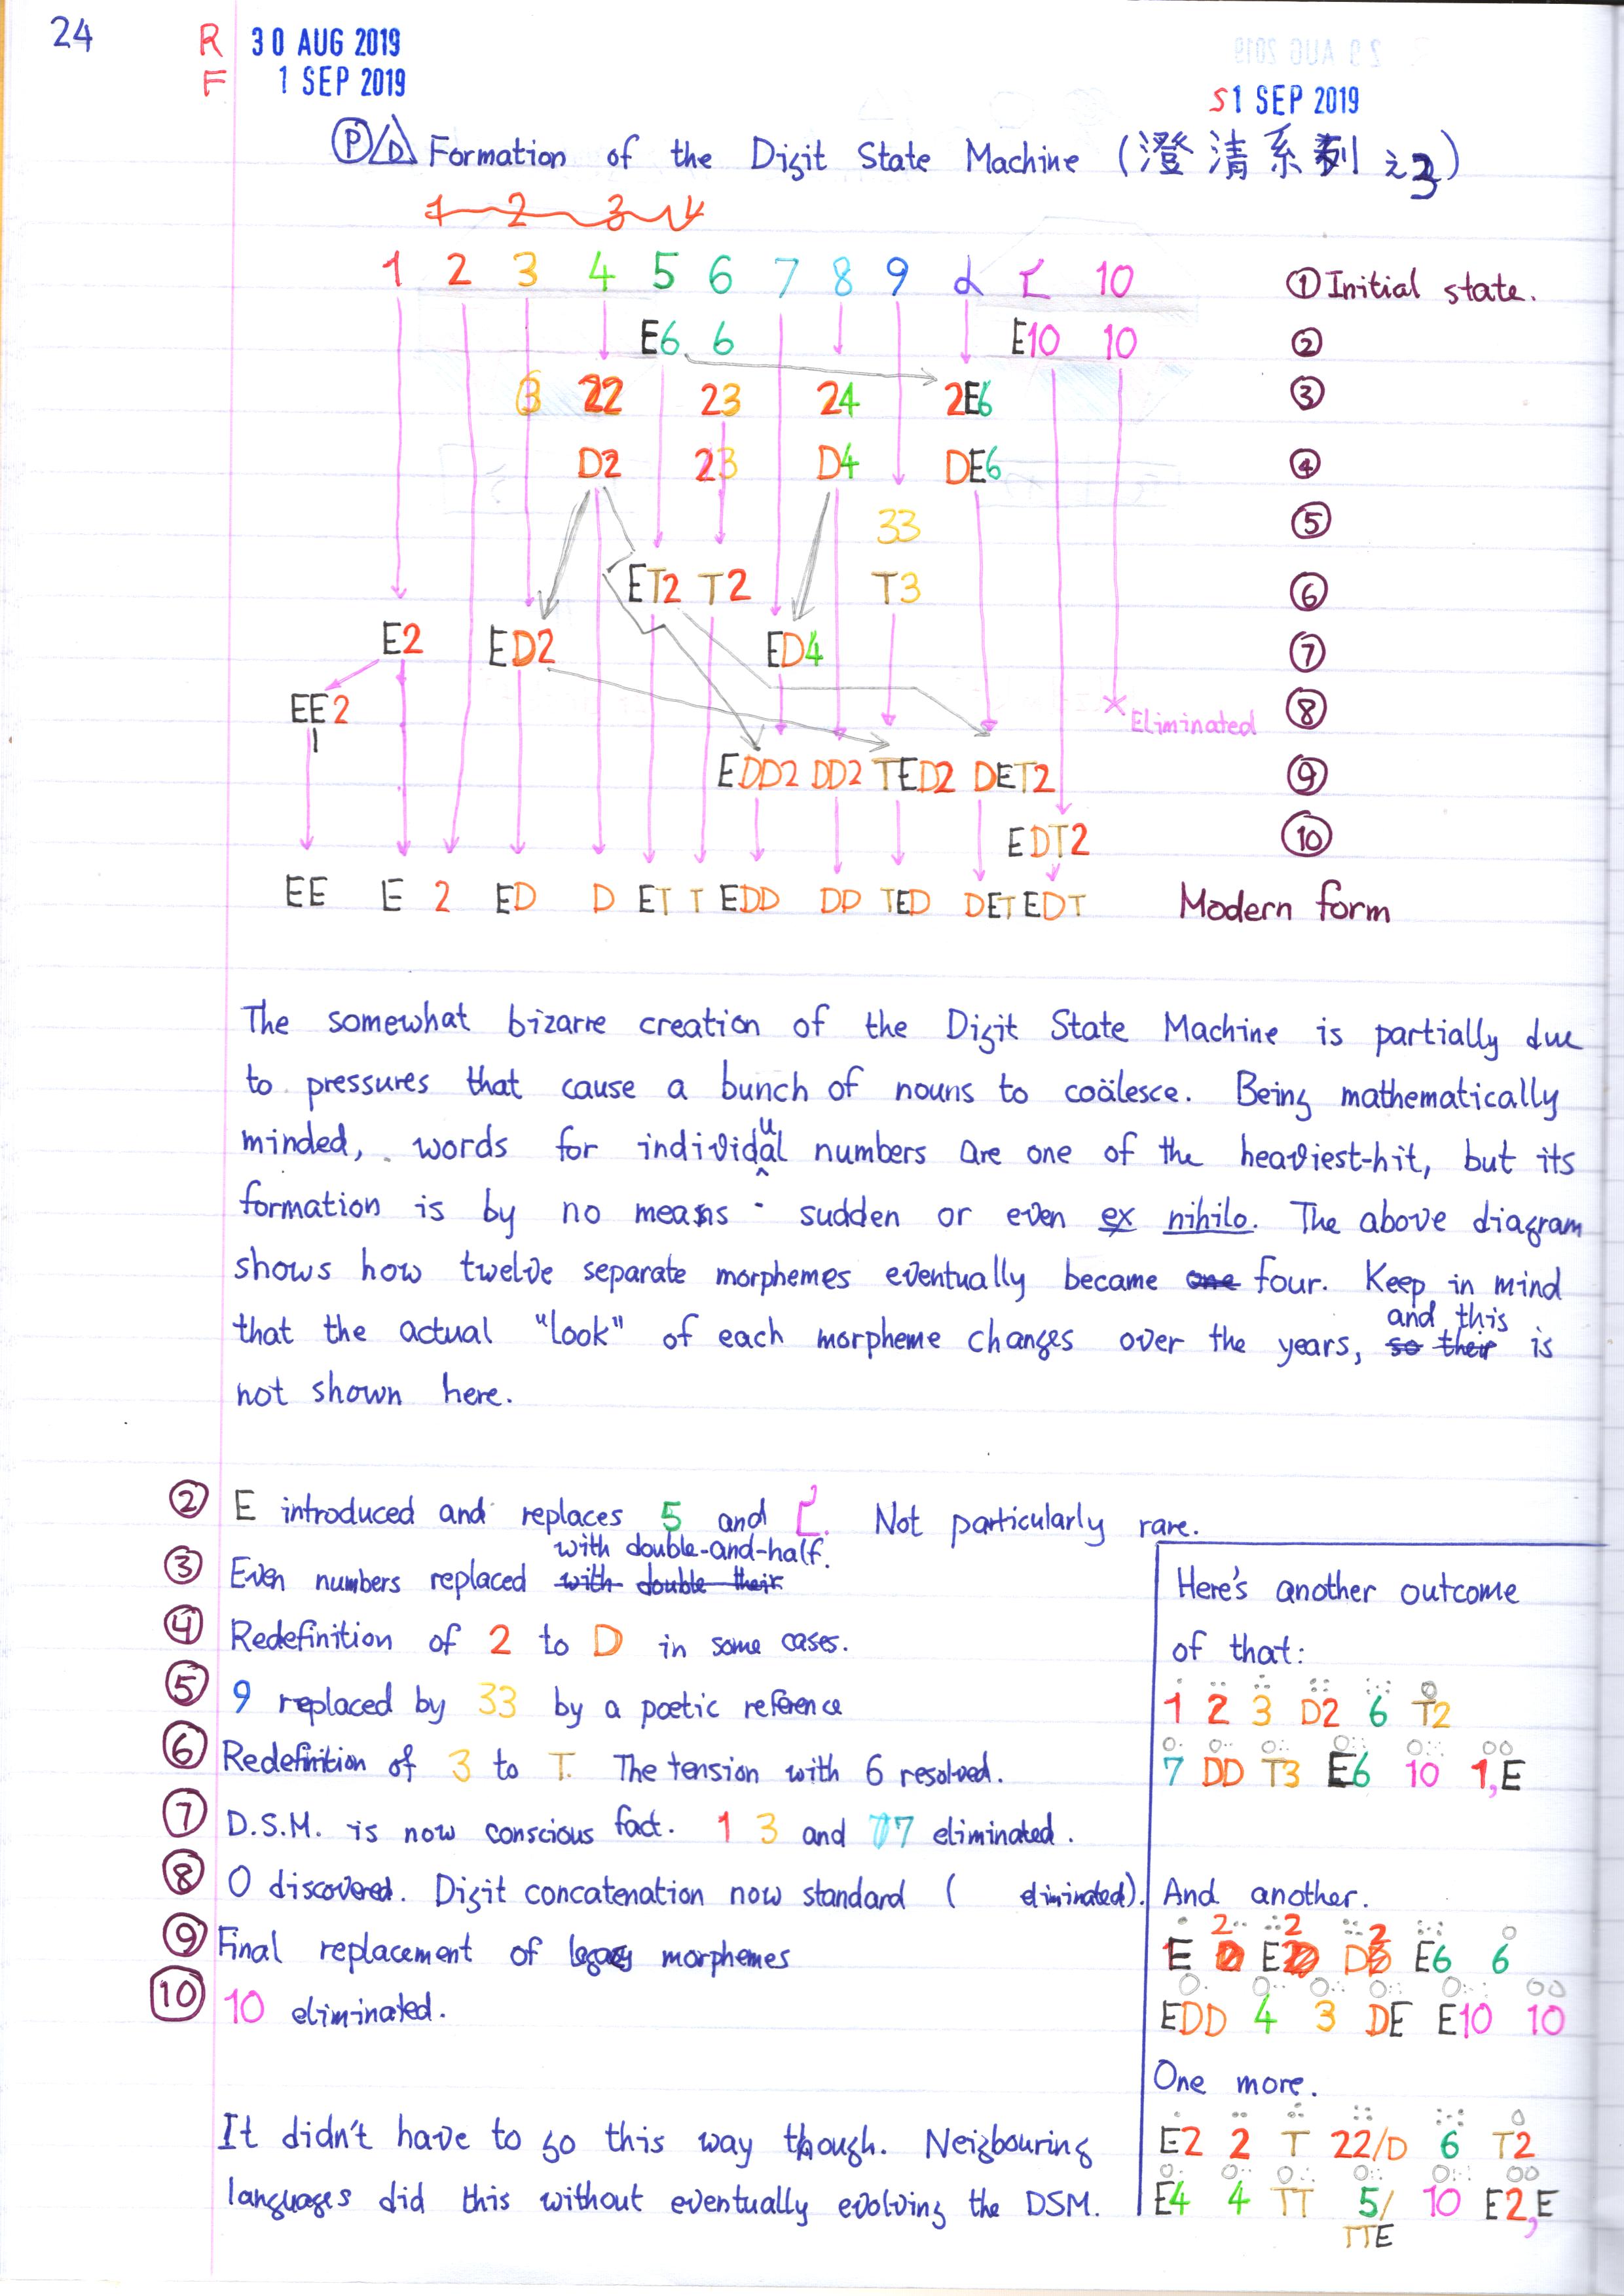 24
R 30 AUG 2019
F 1 SEP 2019
S1 SEP 2019
P/D Formation of the Digit State Machine (澄清系列之3)
1 2 3 4
1 2 3 4 5 6 7 8 9 10 ① Initial state.
E6 6 E10 10 ②
3 22 23 24 2E6 ③
D2 23 D4 DE6 ④
33 ⑤
ET2 T2 T3 ⑥
E2 ED2 ED4 ⑦
EE2 × Eliminated ⑧
EDD2 DD2 TED2 DET2 ⑨
EDT2 ⑩
EE E 2 ED D ET T EDD DD TED DET EDT Modern form
The somewhat bizarre creation of the Digit State Machine is partially due
to pressures that cause a bunch of nouns to coälesce. Being mathematically
minded, words for individual numbers are one of the heaviest-hit, but its
formation is by no means sudden or even ex nihilo. The above diagram
shows how twelve separate morphemes eventually became one four. Keep in mind
that the actual "look" of each morpheme changes over the years, so their and this is
not shown here.
② E introduced and replaces 5 and . Not particularly rare.
③ Even numbers replaced with double their with double-and-half.
④ Redefinition of 2 to D in some cases.
⑤ 9 replaced by 33 by a poetic reference
⑥ Redefinition of 3 to T. The tension with 6 resolved.
⑦ D.S.M. is now conscious fact. 1 3 and 7 eliminated.
⑧ 0 discovered. Digit concatenation now standard ( eliminated).
⑨ Final replacement of legacy morphemes
⑩ 10 eliminated.
It didn't have to go this way though. Neigbouring
languages did this without eventually evolving the DSM.
Here's another outcome
of that:
1 2 3 D2 6 T2
7 DD T3 E6 10 1,E
And another.
E 2 E2 D2 E6 6
EDD 4 3 DE E10 10
One more.
E2 2 T 22/D 6 T2
E4 4 TT 5/ 10 E2,E
TTE